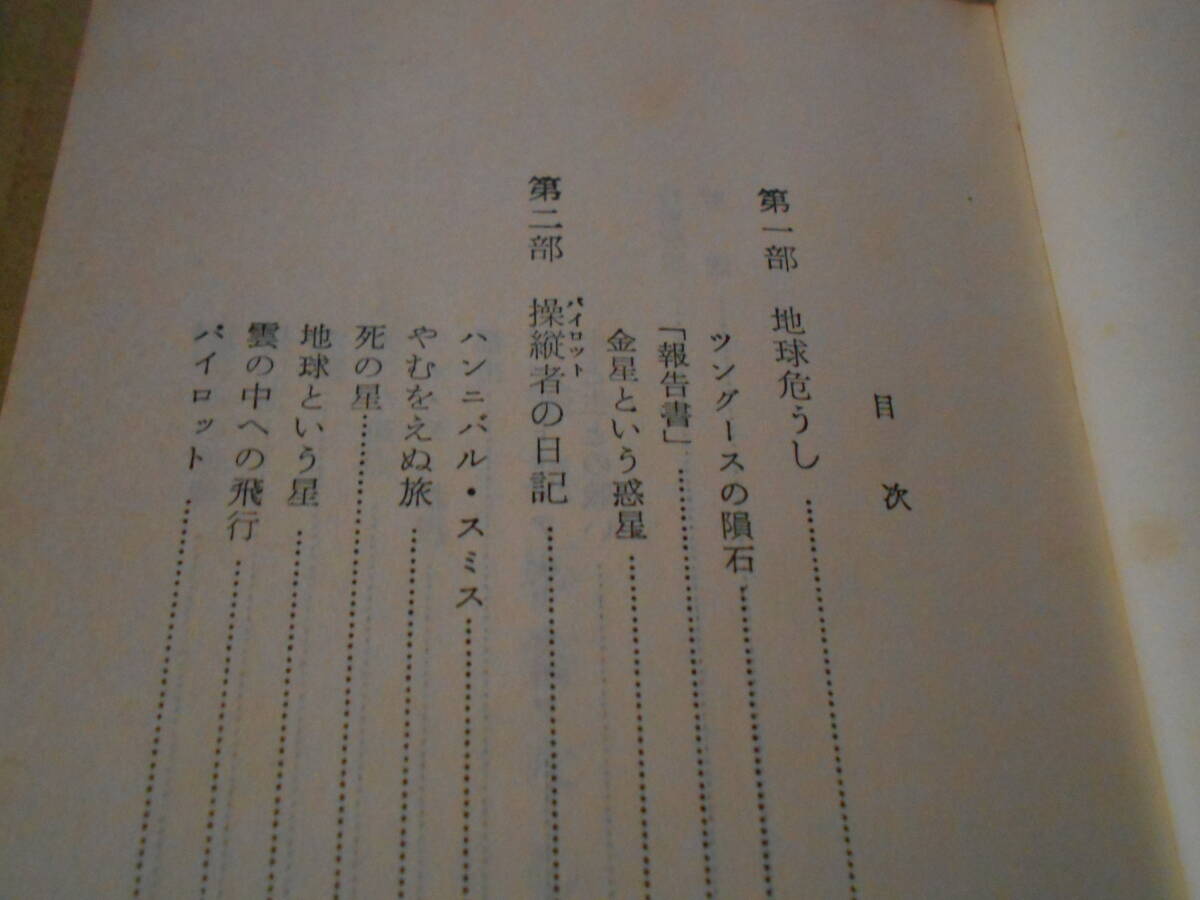 目次
第一部 地球危うし
ツングースの隕石
「報告書」
金星という惑星
第二部 操縦者の日記
パイロット
ハンニバル・スミス
やむをえぬ旅
死の星
地球という星
雲の中への飛行
パイロット